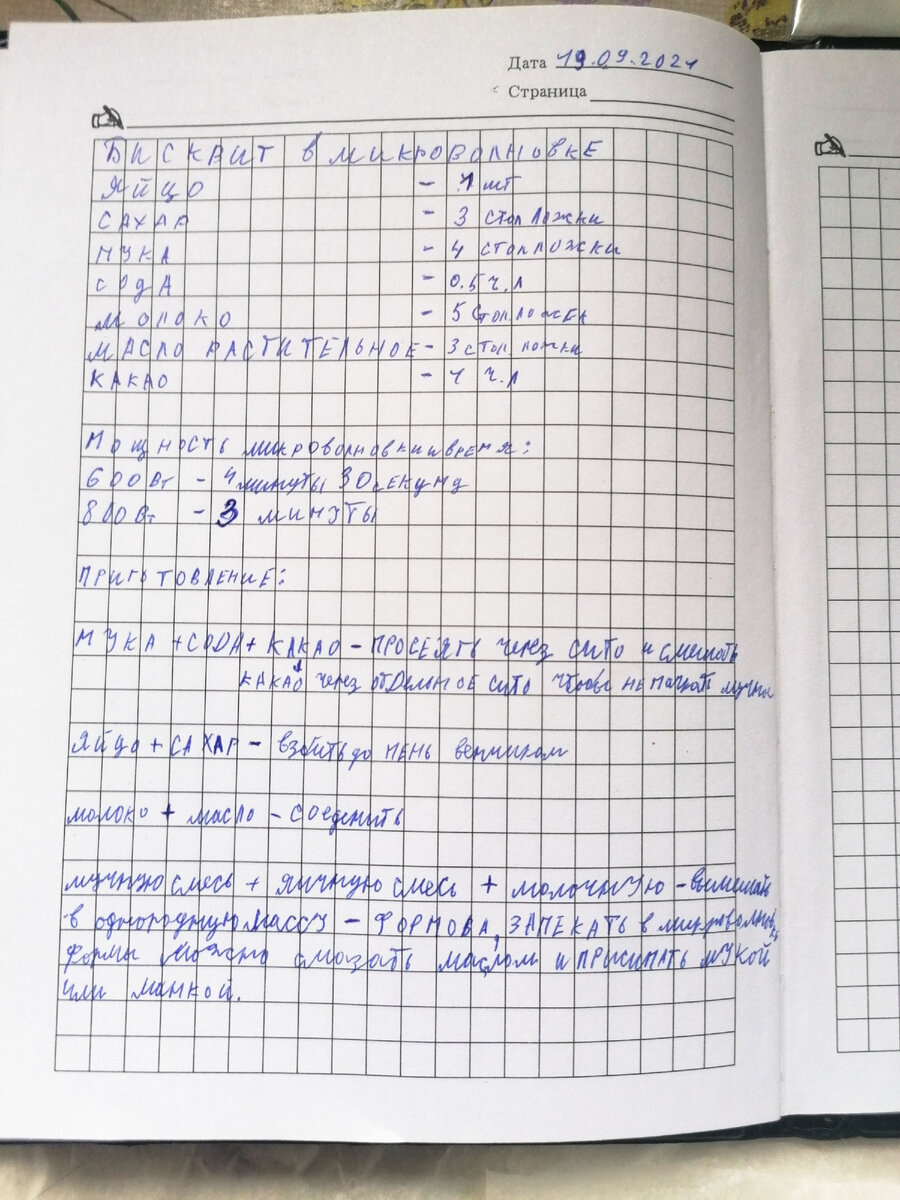 Дата 19.09.2021
Страница
Бисквит в микроволновке
Яйцо - 1 шт
Сахар - 3 стол ложки
Мука - 4 стол ложки
Сода - 0.5 ч.л
Молоко - 5 стол ложек
Масло растительное - 3 стол ложки
Какао - 1 ч.л
Мощность микроволновки и время:
600 Вт - 4 минуты 30 секунд
800 Вт - 3 минуты
Приготовление:
Мука + сода + какао - просеять через сито и смешать
какао через отдельное сито чтобы не пачкать
Яйцо + сахар - взбить до пень венчиком
молоко + масло - соеденить
мучную смесь + яичную смесь + молочную - вымешать
в однородную массу - формова, запекать в
формы можно смазать маслом и присипать мукой
или манкой.